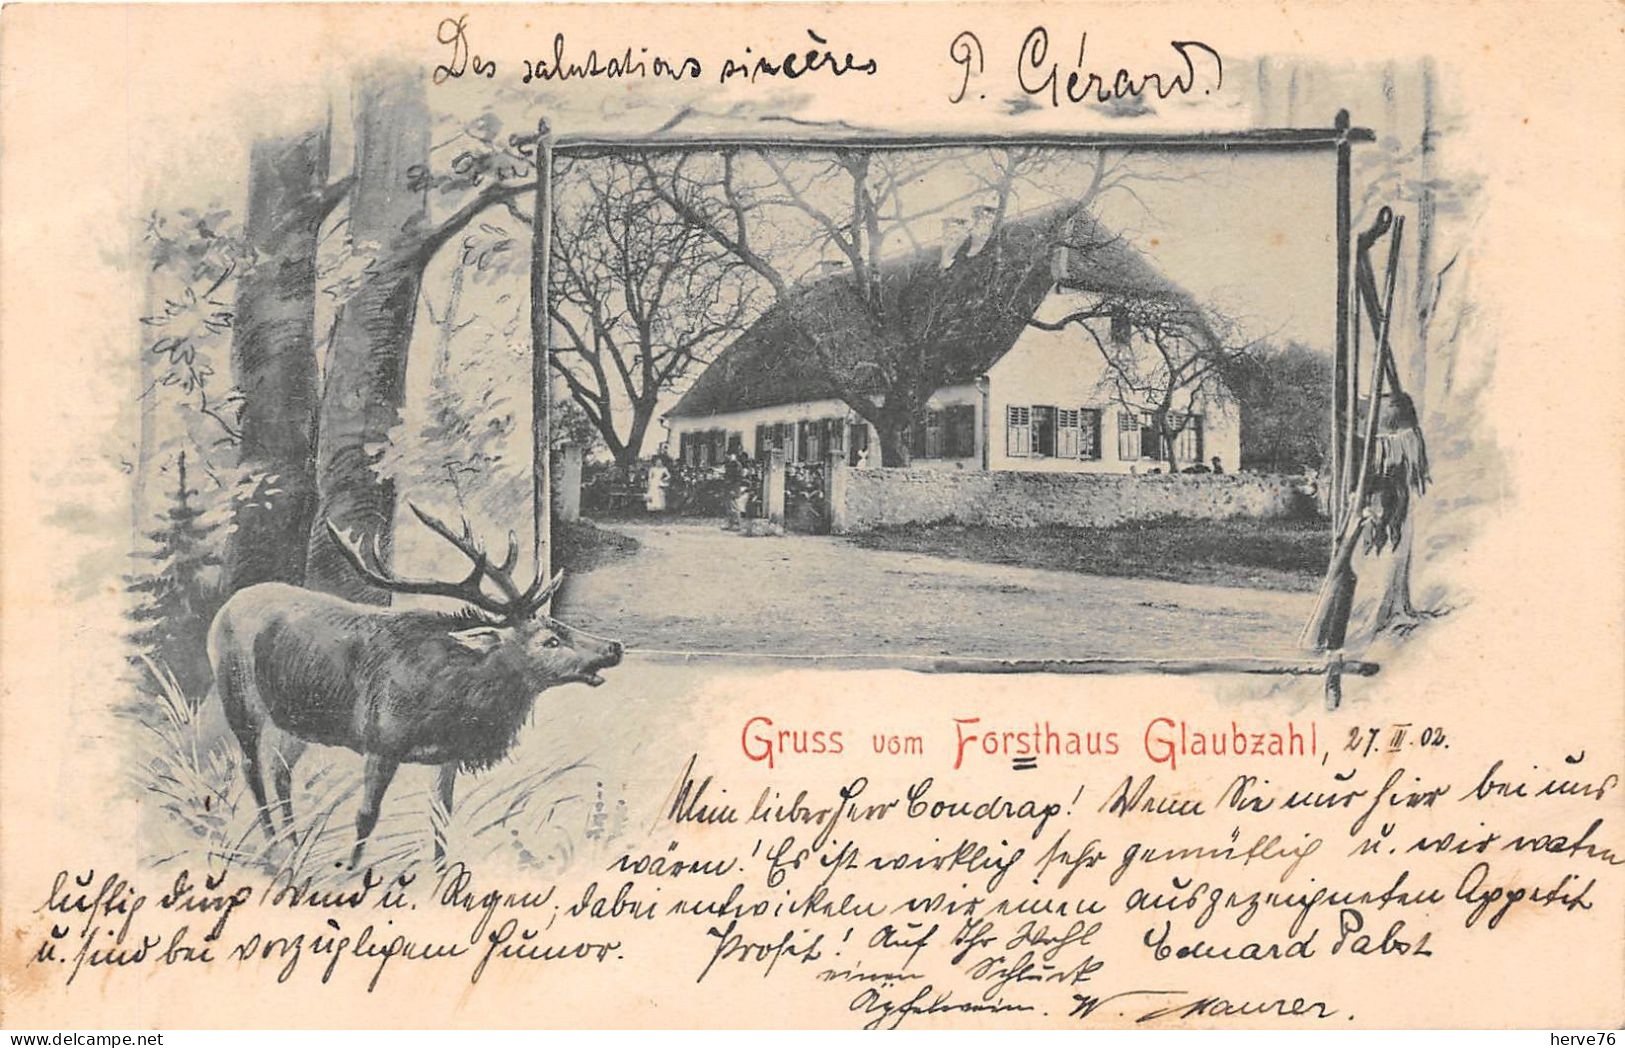 Des salutations sincères P. Gérard.
Gruss vom Forsthaus Glaubzahl, 27. III. 02.
Mein lieber Herr Coudrap! Wenn Sie nur hier bei uns
wären! Es ist wirklich sehr gemütlich u. wir waten
lustig durch Wind u. Regen; dabei entwickeln wir einen ausgezeichneten Appetit
u. sind bei vorzüglichem Humor. Prosit! Auf Ihr Wohl Eduard Pabst
einen Schluck
Äpfelwein. W. Maurer.
herve76